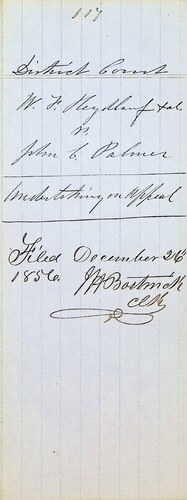 117
District Court
W. F. Heydlauf & al
vs
John C. Palmer
Undertaking on Appeal
Filed December 26
1856.
Bostwick
Clk